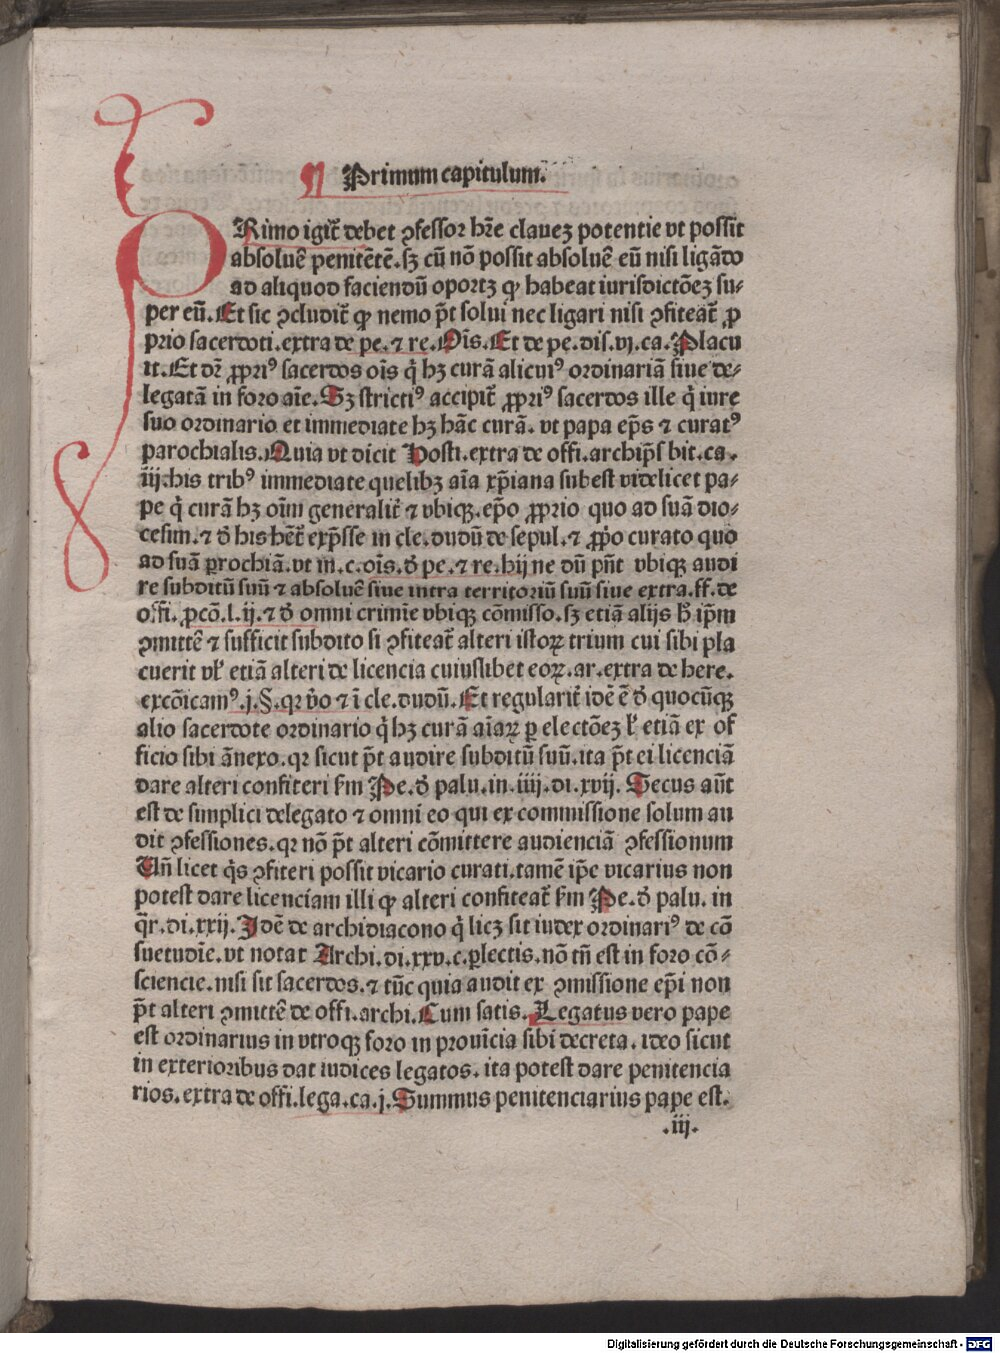 ¶ Primum capitulum.
PRimo igit̃ debet ꝯfessor hr̃e clauez potentie vt possit
absoluẽ penitẽtẽ.sꝫ cũ nõ possit absoluẽ eũ nisi ligãdo
ad aliquod faciendũ oportꝫ ꝙ habeat iurisdictõeꝫ su⸗
per eũ.Et sic ꝯcludit̃ ꝙ nemo p̃t solui nec ligari nisi ꝯfiteat̃ ꝓ
prio sacerdoti.extra de pe.⁊ re.Oĩs.Et de pe.dis.vj.ca.Placu
it.Et dr̃ ꝓpriꝰ sacerdos oĩs q̇ hꝫ curã alicuiꝰ ordinariã siue de⸗
legatã in foro aĩe.Sꝫ strictiꝰ accipit̃ ꝓpriꝰ sacerdos ille q̇ iure
suo ordinario et immediate hꝫ hãc curã.vt papa ep̃s ⁊ curatꝰ
parochialis.Quia vt dicit Hosti.extra de offi.archip̃s bit.ca.
iij.his tribꝰ immediate quelibꝫ aĩa xp̃iana subest videlicet pa⸗
pe q̇ curã hꝫ oĩm generalit̃ ⁊ vbiqꝫ.ep̃o ꝓprio quo ad suã dio⸗
cesim.⁊ đ his hẽt̃ exp̃sse in cle.dudũ de sepul.⁊ ꝓp̃o curato quo
ad suã ꝑrochiã.vt in.c.oĩs.đ pe.⁊ re.hij ne dũ pñt vbiqꝫ audi
re subditũ suũ ⁊ absoluẽ siue intra territoriũ suũ siue extra.ff.de
offi.ꝓcõ.l.ij.⁊ đ omni crimĩe vbiqꝫ cõmisso.sꝫ etiã alijs h̃ ip̃m
ꝯmittẽ ⁊ sufficit subdito si ꝯfiteat̃ alteri istoꝝ trium cui sibi pla
cuerit vł etiã alteri de licencia cuiuslibet eoꝝ.ar.extra de here.
excõicamꝰ.j.§.qꝛ v̊o ⁊ ĩ cle.dudũ.Et regularit̃ idẽ ẽ đ quocũqꝫ
alio sacerdote ordinario q̇ hꝫ curã aĩaꝝ ꝑ electõeꝫ ł etiã ex of
ficio sibi ãnexo.qꝛ sicut p̃t audire subditũ suũ.ita p̃t ei licenciã
dare alteri confiteri ẜm Pe.đ palu.in.iiij.di.xvij.Secus aũt
est de simplici delegato ⁊ omni eo qui ex commissione solum au
dit ꝯfessiones.qꝛ nõ p̃t alteri cõmittere audienciã ꝯfessionum
Uñ licet q̇s ꝯfiteri possit vicario curati.tamẽ ip̃e vicarius non
potest dare licenciam illi ꝙ alteri confiteat̃ ẜm Pe.đ palu. in
q̃r.di.xxij.Idẽ de archidiacono q̇ licꝫ sit iudex ordinariꝰ de cõ
suetudĩe.vt notat Archi.di.xxv.c.ꝑlectis.nõ tñ est in foro cõ⸗
sciencie.nisi sit sacerdos.⁊ tũc quia audit ex ꝯmissione ep̃i non
p̃t alteri ꝯmittẽ de offi.archi.Cum satis.Legatus vero pape
est ordinarius in vtroqꝫ foro in prouĩcia sibi decreta.ideo sicut
in exterioribus dat iudices legatos.ita potest dare penitencia
rios.extra de offi.lega.ca.j.Summus penitenciarius pape est.
.iij.
Digitalisierung gefördert durch die Deutsche Forschungsgemeinschaft - DFG